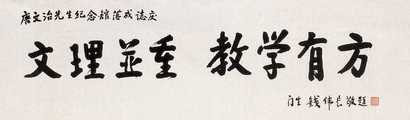 唐文治先生纪念馆落成志庆
文理並重 教学有方
门生 钱伟长敬题